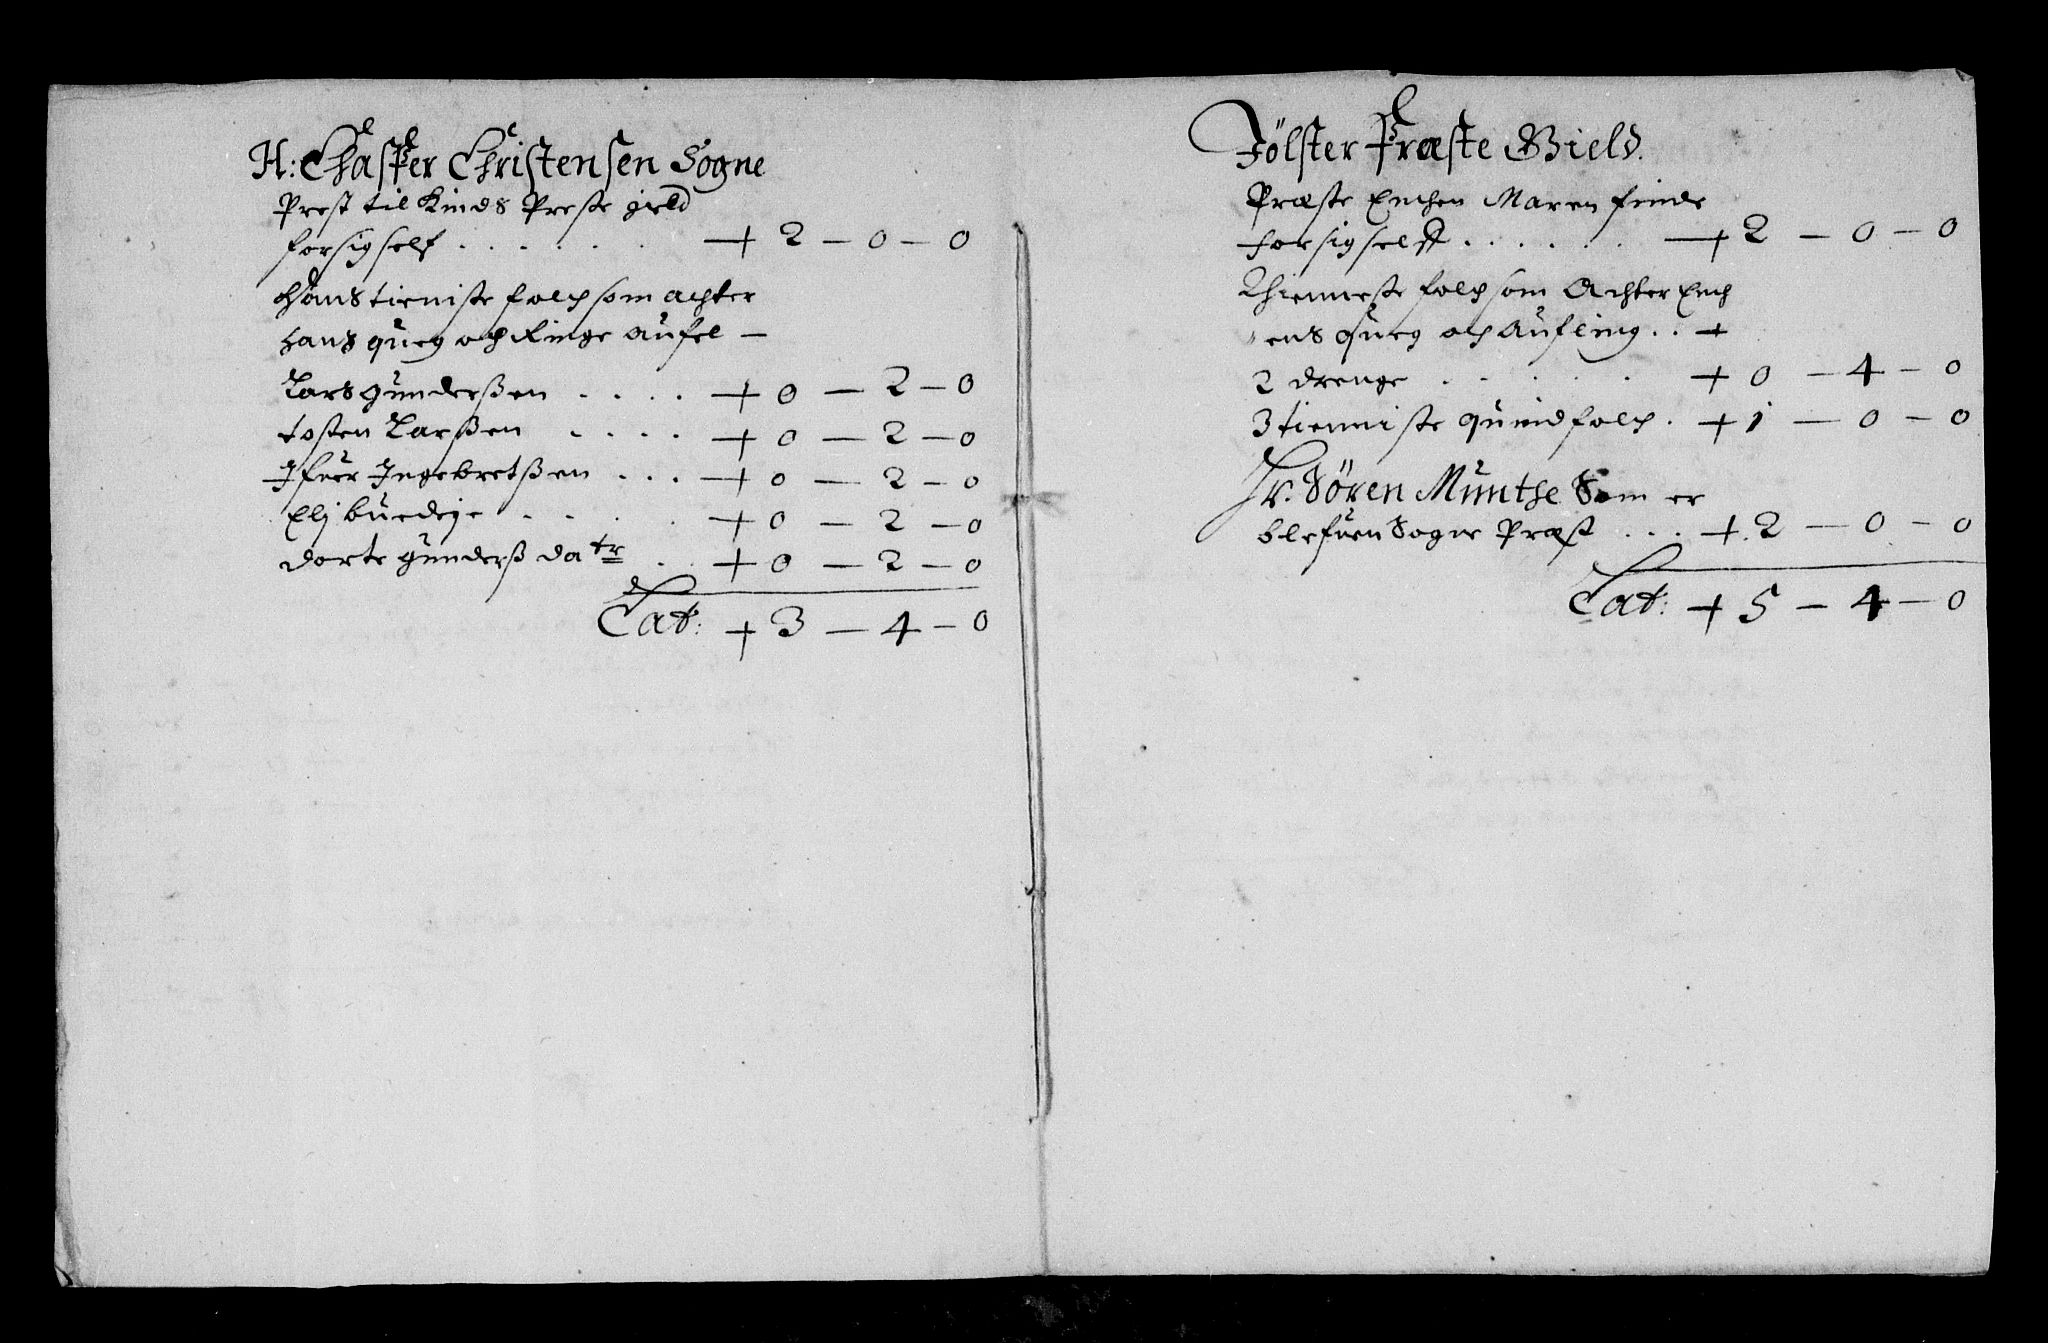 H: Chasper Christensen Sogne
Prest til Kinds Preste gield
for sig self . . . . . + 2 — 0 — 0
Hans tieniste folch som achter
hans queg och Ringe aufel —
Lars Gunderßen . . . . + 0 — 2 — 0
tosten Larßen . . . . + 0 — 2 — 0
Ifuer Ingebretßen . . . + 0 — 2 — 0
Elj . . . . + 0 — 2 — 0
dorte Gunderß datr . . + 0 — 2 — 0
Lat: + 3 — 4 — 0
Jölster Præste Gield.
Præste Enchen Maren finde
for sig selff . . . . . + 2 — 0 — 0
Thienneste folch som Achter Ench
ens queg och Aufling . . +
2 drenge . . . . . + 0 — 4 — 0
3 tienniste quindfolch . + 1 — 0 — 0
Hr. Sören Munthe Som er
blefuen Sogne Præst . . . + 2 — 0 — 0
Lat: + 5 — 4 — 0